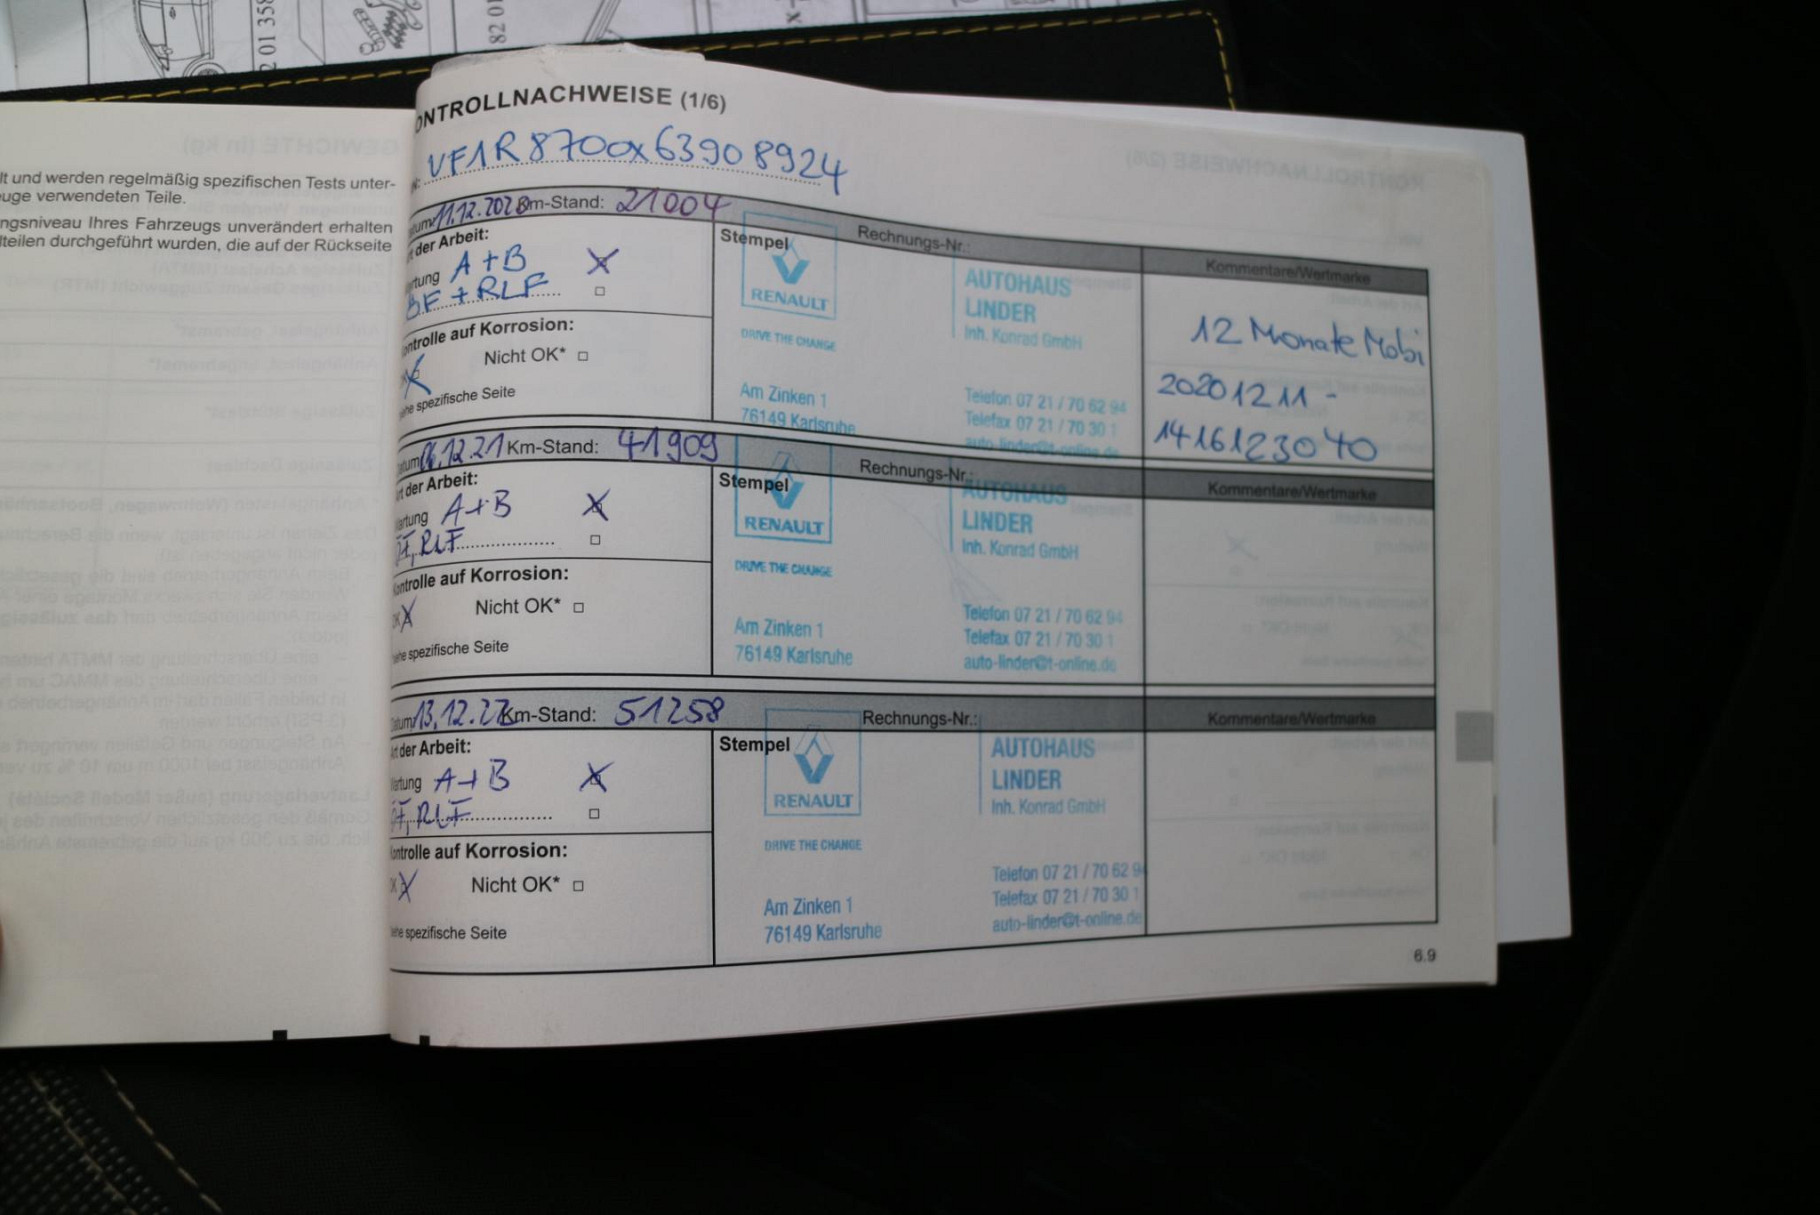 2 01 358
82 01
lt und werden regelmäßig spezifischen Tests unter-
uge verwendeten Teile.
ngsniveau Ihres Fahrzeugs unverändert erhalten
lteilen durchgeführt wurden, die auf der Rückseite
ONTROLLNACHWEISE (1/6)
VF1R8700X63908924
Datum 11.12.2020 Km-Stand: 21004
Rechnungs-Nr.:
Kommentare/Wertmarke
t der Arbeit:
Stempel
rtung A+B
BF + RLF
ontrolle auf Korrosion:
Nicht OK*
ehe spezifische Seite
RENAULT
DRIVE THE CHANGE
Am Zinken 1
76149 Karlsruhe
AUTOHAUS
LINDER
Inh. Konrad GmbH
Telefon 07 21 / 70 62 94
Telefax 07 21 / 70 30 1
auto-linder@t-online.de
12 Monate Mobi
20201211 -
1416123040
atum 06.12.21 Km-Stand: 41909
Rechnungs-Nr.:
Kommentare/Wertmarke
rt der Arbeit:
Stempel
artung A+B
RLF
ontrolle auf Korrosion:
OK Nicht OK*
ehe spezifische Seite
RENAULT
DRIVE THE CHANGE
Am Zinken 1
76149 Karlsruhe
AUTOHAUS
LINDER
Inh. Konrad GmbH
Telefon 07 21 / 70 62 94
Telefax 07 21 / 70 30 1
auto-linder@t-online.de
atum 13.12.22 Km-Stand: 51258
Rechnungs-Nr.:
Kommentare/Wertmarke
rt der Arbeit:
Stempel
artung A+B
RLF
ontrolle auf Korrosion:
OK Nicht OK*
ehe spezifische Seite
RENAULT
DRIVE THE CHANGE
Am Zinken 1
76149 Karlsruhe
AUTOHAUS
LINDER
Inh. Konrad GmbH
Telefon 07 21 / 70 62 9
Telefax 07 21 / 70 30 1
auto-linder@t-online.de
6.9